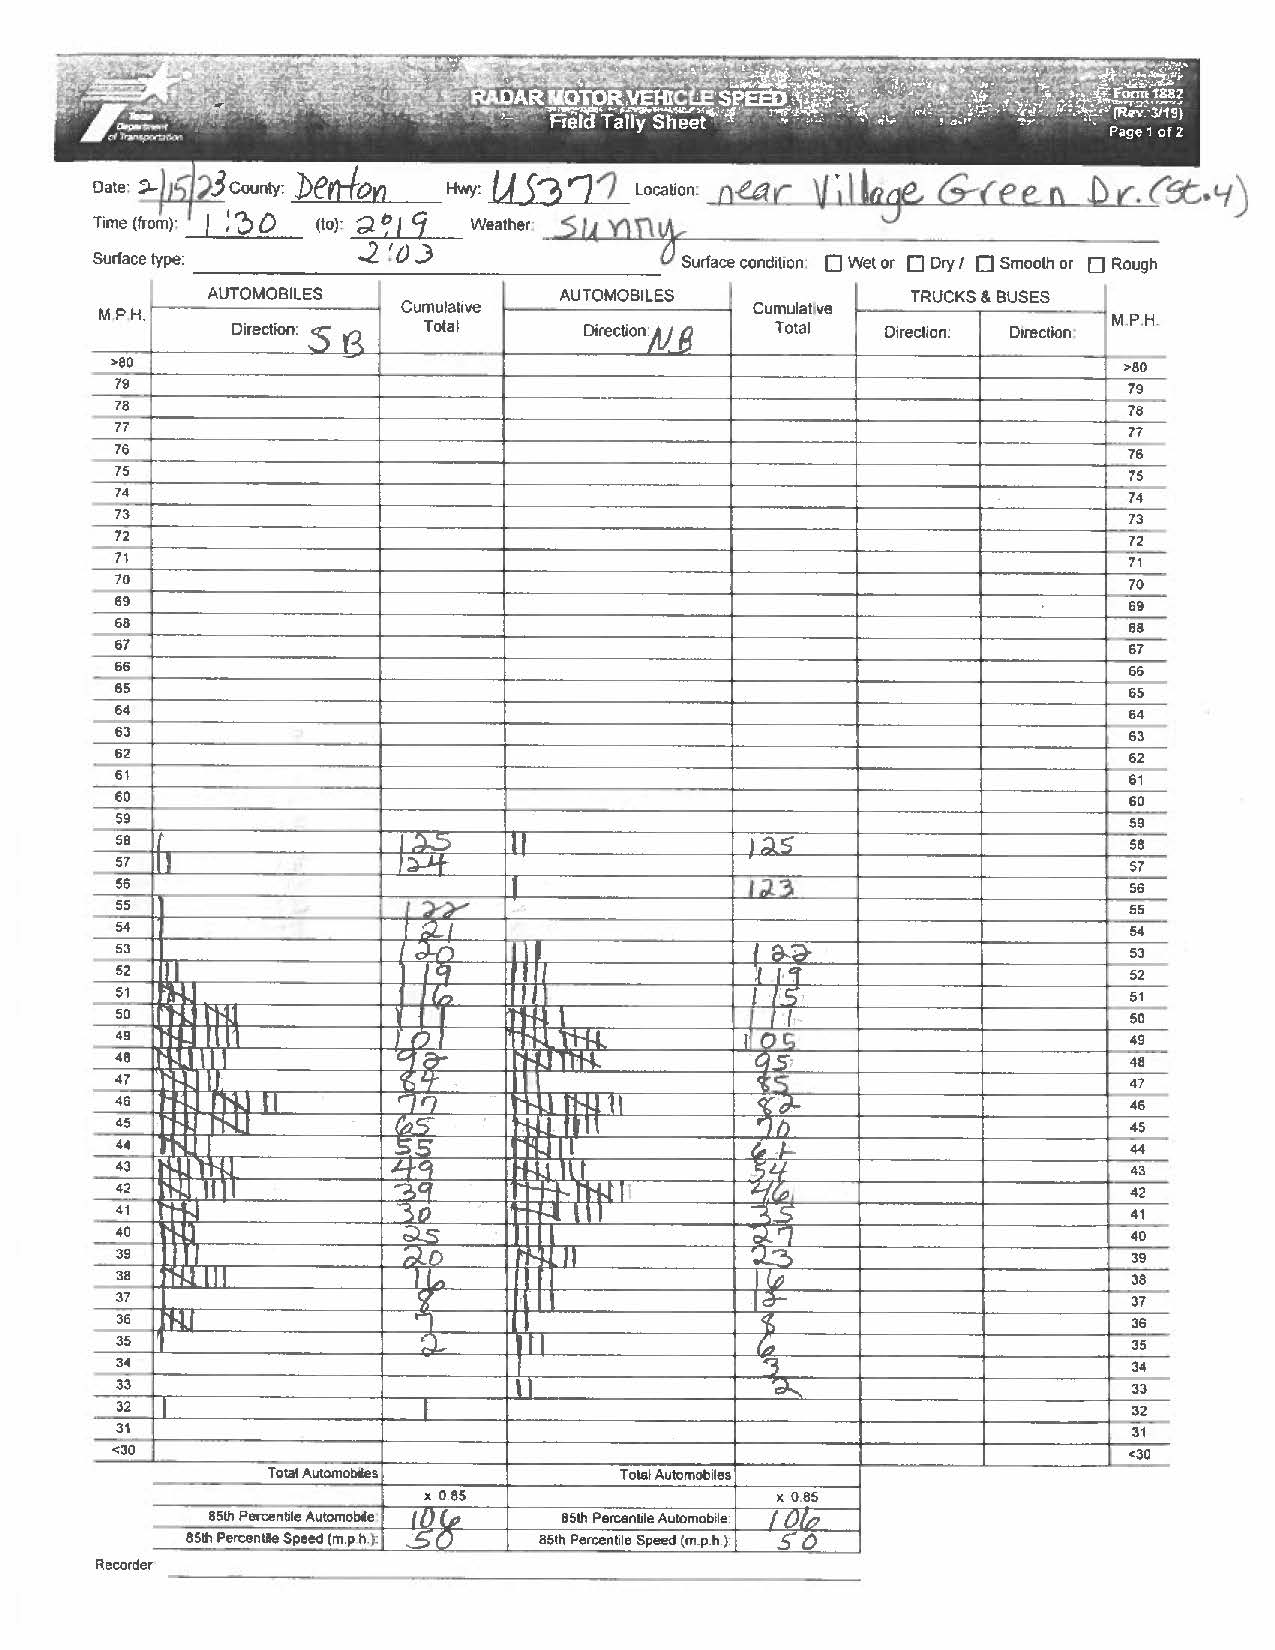 Texas
Department
of Transportation
RADAR MOTOR VEHICLE SPEED
Field Tally Sheet
Form 1882
(Rev. 3/19)
Page 1 of 2
Date: 2/15/23 County: Denton Hwy: US377 Location: near Village Green Dr. (St. 4)
Time (from): 1:30 (to): 2:19 Weather: Sunny
2:03
Surface type: Surface condition: Wet or Dry / Smooth or Rough
M.P.H. AUTOMOBILES Cumulative Total AUTOMOBILES Cumulative Total TRUCKS & BUSES M.P.H.
Direction: SB Direction: NB Direction: Direction:
>80 >80
79 79
78 78
77 77
76 76
75 75
74 74
73 73
72 72
71 71
70 70
69 69
68 68
67 67
66 66
65 65
64 64
63 63
62 62
61 61
60 60
59 59
58 125 125 58
57 124 57
56 123 56
55 122 55
54 121 54
53 120 122 53
52 119 119 52
51 116 115 51
50 111 111 50
49 101 105 49
48 92 95 48
47 84 85 47
46 77 82 46
45 65 70 45
44 55 61 44
43 49 54 43
42 39 46 42
41 30 35 41
40 25 27 40
39 20 23 39
38 16 16 38
37 8 12 37
36 7 8 36
35 2 6 35
34 3 34
33 2 33
32 1 32
31 31
<30 <30
Total Automobiles Total Automobiles
x 0.85 x 0.85
85th Percentile Automobile: 106 85th Percentile Automobile: 106
85th Percentile Speed (m.p.h.): 50 85th Percentile Speed (m.p.h.): 50
Recorder